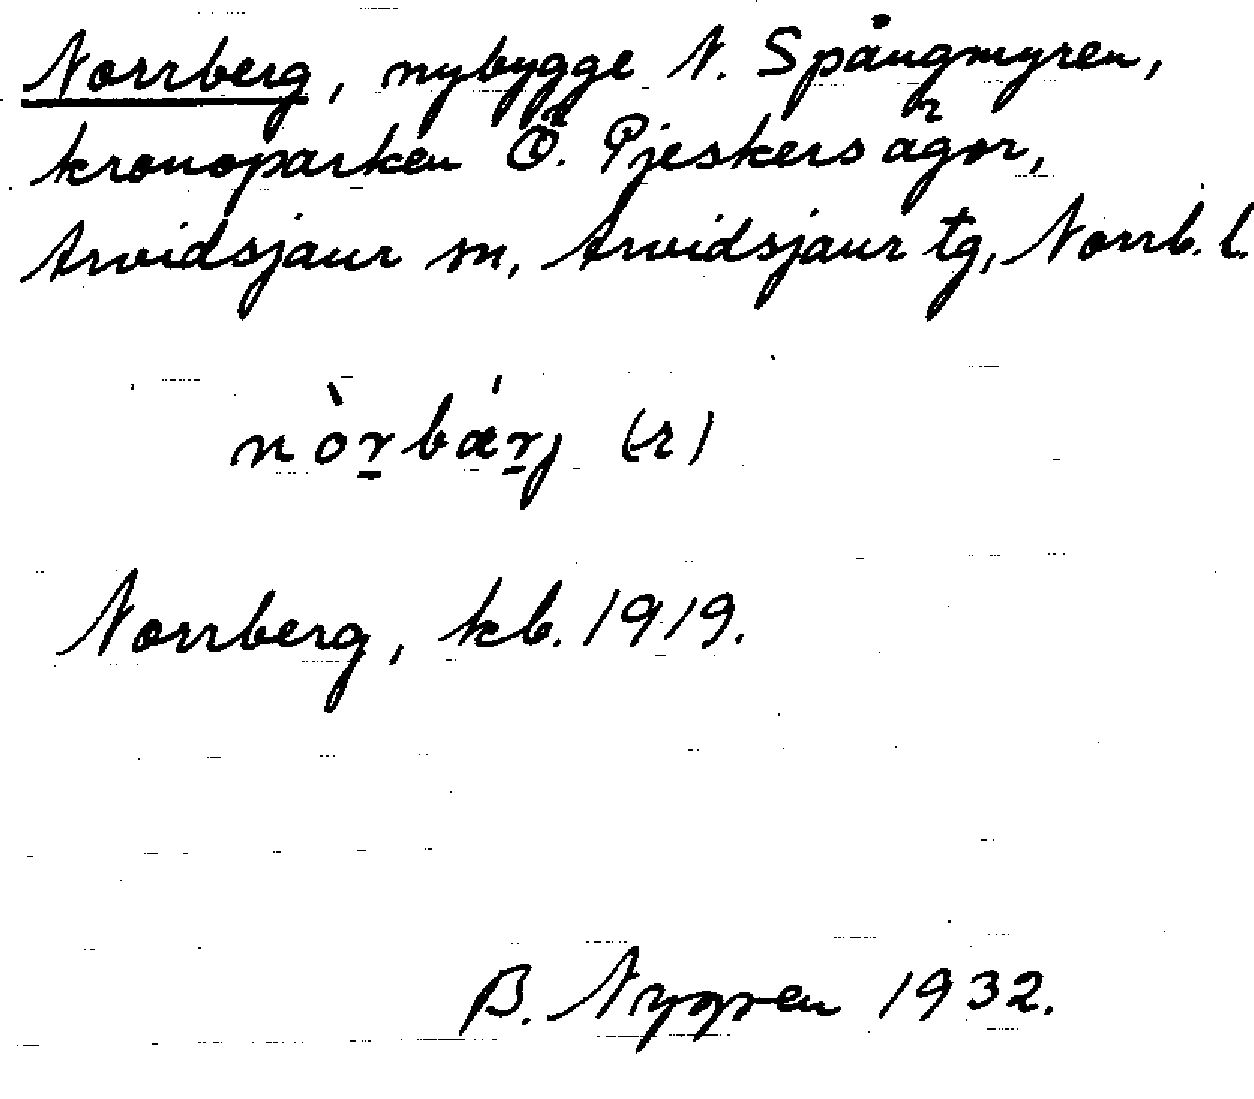 Norrberg, nybygge N. Spångmyren,
kronoparken Ö. Pjeskersågor,
Arvidsjaur sn, Arvidsjaur tg, Norrb. l.
nòr̲bár̲j (-r)
Norrberg, kb. 1919.
B. Nygren 1932.